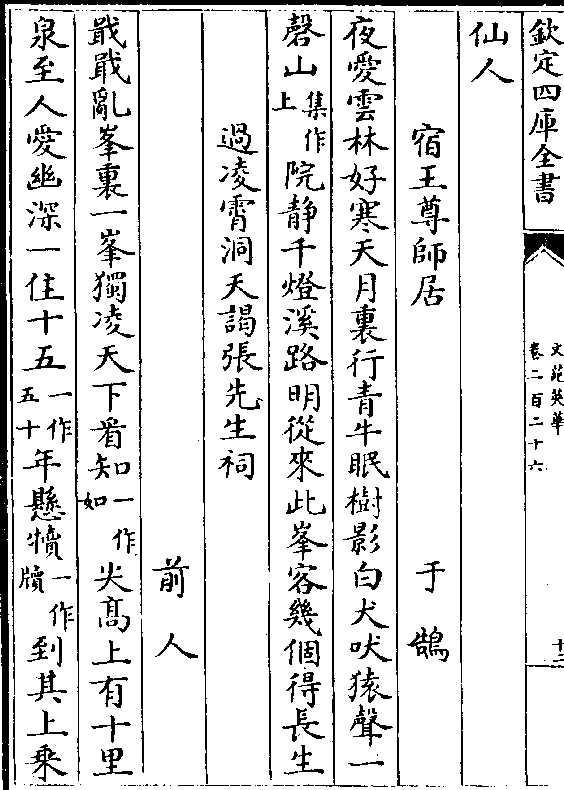 欽定四庫全書
文苑英華
卷二百二十六
十二
仙人
宿王尊師居
于鵠
夜愛雲林好寒天月裏行青牛眠樹影白犬吠猿聲一
磬山集作上院静千燈溪路明從來此峯客幾個得長生
過凌霄洞天謁張先生祠
前人
戢戢亂峯裏一峯獨凌天下看知一作如尖高上有十里
泉至人愛幽深一住十五一作五十年懸犢一作牘到其上乗